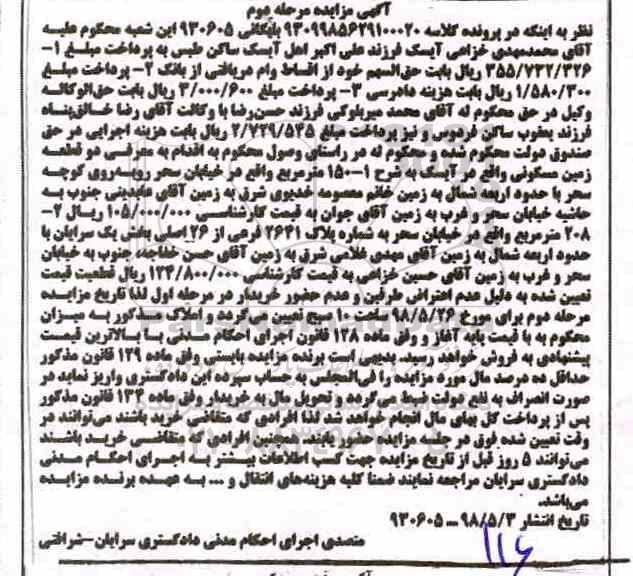 آگهی مزایده مرحله دوم
نظر به اینکه در پرونده کلاسه ۹۳۰۹۹۸۵۶۲۹۱۰۰۰۲۰ بایگانی ۹۳۰۶۰۵ این شعبه محکوم علیه
آقای محمدمهدی خزاعی آیسک فرزند علی اکبر اهل آیسک ساکن طبس به پرداخت مبلغ ۱-
۳۵۵/۷۳۲/۳۲۶ ریال بابت حق‌السهم خود از اقساط وام دریافتی از بانک ۲- پرداخت مبلغ
۱/۵۸۰/۳۰۰ ریال بابت هزینه دادرسی ۳- پرداخت مبلغ ۳/۰۰۰/۶۰۰ ریال بابت حق‌الوکاله
وکیل در حق محکوم له آقای محمد میربلوکی فرزند حسن‌رضا با وکالت آقای رضا خالق‌پناه
فرزند یعقوب ساکن فردوس و نیز پرداخت مبلغ ۲/۷۲۹/۵۴۵ ریال بابت هزینه اجرایی در حق
صندوق دولت محکوم شده و محکوم له در راستای وصول محکوم به اقدام به معرفی دو قطعه
زمین مسکونی واقع در آیسک به شرح ۱-۱۵۰ مترمربع واقع در خیابان سحر روبه‌روی کوچه
سحر با حدود اربعه شمال به زمین خانم معصومه خدیوی شرق به زمین آقای عابدینی جنوب به
حاشیه خیابان سحر و غرب به زمین آقای جوان به قیمت کارشناسی ۱۰۵/۰۰۰/۰۰۰ ریال ۲-
۲۰۸ مترمربع واقع در خیابان سحر به شماره پلاک ۲۶۴۱ فرعی از ۲۶ اصلی بخش یک سرایان با
حدود اربعه شمال به زمین آقای مهدی غلامی شرق به زمین آقای حسن خفاجه، جنوب به خیابان
سحر و غرب به زمین آقای حسین خزاعی به قیمت کارشناسی ۱۲۴/۸۰۰/۰۰۰ ریال قطعیت قیمت
تعیین شده به دلیل عدم اعتراض طرفین و عدم حضور خریدار در مرحله اول لذا تاریخ مزایده
مرحله دوم برای مورخ ۹۸/۵/۲۶ ساعت ۱۰ صبح تعیین می‌گردد و املاک مذکور به میزان
محکوم به با قیمت پایه آغاز و وفق ماده ۱۲۸ قانون اجرای احکام مدنی با بالاترین قیمت
پیشنهادی به فروش خواهد رسید. بدیهی است برنده مزایده بایستی وفق ماده ۱۲۹ قانون مذکور
حداقل ده درصد مال مورد مزایده را فی‌المجلس به حساب سپرده این دادگستری واریز نماید در
صورت انصراف به نفع دولت ضبط می‌گردد و تحویل مال به خریدار وفق ماده ۱۳۴ قانون مذکور
پس از پرداخت کل بهای مال انجام خواهد شد لذا افرادی که متقاضی خرید باشند می‌توانند در
وقت تعیین شده فوق در جلسه مزایده حضور یابند. همچنین افرادی که متقاضی خرید باشند
می‌توانند ۵ روز قبل از تاریخ مزایده جهت کسب اطلاعات بیشتر به اجرای احکام مدنی
دادگستری سرایان مراجعه نمایند ضمنا کلیه هزینه‌های انتقال و ... به عهده برنده مزایده
می‌باشد.
تاریخ انتشار ۹۸/۵/۳ ــ ۹۳۰۶۰۵
متصدی اجرای احکام مدنی دادگستری سرایان-شرافتی
۱۱۶